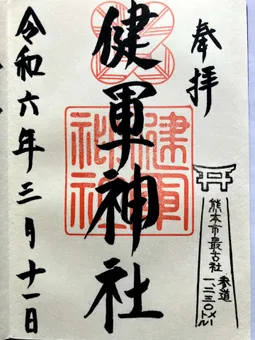 奉拝
熊本市最古社
参道
一、二三〇メートル
健軍神社
健軍神社
令和六年三月十一日